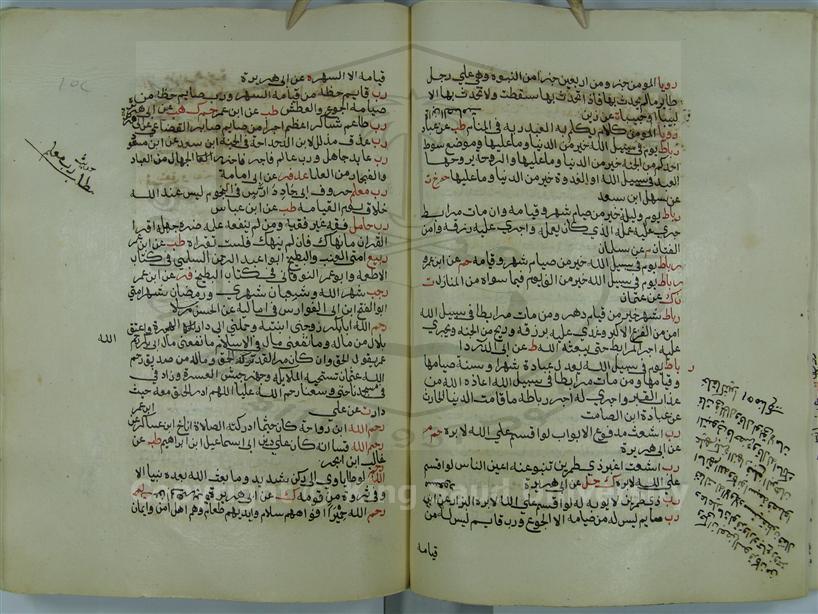 رويا المومن جزء من اربعين جزا من النبوة وهي على رجل
طاير مالم يحدث بها فاذا تحدث بها سقطت ولا تحدث بها الا
لبيبا او حبيبا ت عن ابى رزين
رويا المومن كلام يكلم به العبد ربه في المنام طب عن عباد
رباط يوم في سبيل الله خير من الدنيا وما عليها وموضع سوط
احدكم من الجنه خير من الدنيا وما عليها والروحة يروحها
العبد في سبيل الله او الغدوة خير من الدنيا وما عليها حم خ ت
عن سهل ابن سعد
رباط يوم وليلة خير من صيام شهر وقيامه وان مات مرابطا
جرى عليه عمله الذى كان يعمله واجرى عليه رزقه وامن
الفتان م عن سلمان
رباط يوم في سبيل الله خير من صيام شهر وقيامه حم عن ابن عمرو
رباط يوم في سبيل الله خير من الف يوم فيما سواه من المنازل ت
ن ك عن عثمان
رباط شهر خير من قيام دهر ومن مات مرابطا في سبيل الله
امن من الفزع الاكبر وغدى عليه برزقه وريح من الجنه ويجرى
عليه اجر المرابط حتى يبعثه الله ط عن ابى الدردا
رباط يوم في سبيل الله يعدل عبادة شهر او سنة صيامها
وقيامها ومن مات مرابطا في سبيل الله اعاذه الله من
عذاب القبر واجرى له اجر رباطه ما قامت الدنيا الحارث
عن عبادة ابن الصامت
رب اشعث مدفوع الابواب لو اقسم على الله لابره حم م
عن ابى هريرة
رب اشعث اغبر ذى طمرين تنبو عنه اعين الناس لو اقسم
على الله لابره ك حل عن ابى هريرة
رب ذى طمرين لا يوبه له لو اقسم على الله لابره البزار عن ابن مسعود
رب صايم ليس له من صيامه الا الجوع ورب قايم ليس له من
قيامه
قيامه الا السهر ه عن ابى هريرة
رب قايم حظه من قيامه السهر ورب صايم حظه من
صيامه الجوع والعطش طب عن ابن عمر حم ك هب عن ابى هريرة
رب طاعم شاكر اعظم اجرا من صايم صابر القضاعى عن ابى هريرة
رب عذق مذلل لابن الدحداحة في الجنة ابن سعد عن ابن مسعود
رب عابد جاهل ورب عالم فاجر فاحذروا الجهال من العباد
والفجار من العلما عد فر عن ابى امامة
رب معلم حروف ابى جاد دارس في النجوم ليس عند الله
خلاق يوم القيامه طب عن ابن عباس
رب حامل فقه غير فقيه ومن لم ينفعه علمه ضره جهله اقرا
القران ما نهاك فان لم ينهك فلست تقراه طب عن ابن عمرو
ربيع امتى العنب والبطيخ ابو عبد الرحمن السلمى في كتاب
الاطعمه وابو عمر النوقانى في كتاب البطيخ فر عن ابن عمر
رجب شهر الله وشعبان شهرى ورمضان شهر امتى
ابو الفتح ابن ابى الفوارس في اماليه عن الحسن مرسلا
رحم الله ابا بكر زوجنى ابنته وحملنى الى دار الهجرة واعتق
بلالا من ماله وما نفعنى مال في الاسلام ما نفعنى مال ابى بكر رحم الله
عمر يقول الحق وان كان مرا لقد تركه الحق وماله من صديق رحم
الله عثمان تستحيه الملايكة وجهز جيش العسرة وزاد في
مسجدنا حتى وسعنا رحم الله عليا اللهم ادر الحق معه حيث
دار ت عن على
رحم الله ابن رواحة كان حيثما ادركته الصلاة اناخ ابن عساكر عن ابن عمر
رحم الله قسا انه كان على دين ابى اسماعيل ابن ابراهيم طب عن
غالب ابن ابجر
رحم الله لوطا ياوى الى ركن شديد وما بعث الله بعده نبيا الا
وفي ثروة من قومه ك عن ابى هريرة
رحم الله حميرا افواههم سلام وايديهم طعام وهم اهل امن وايمان